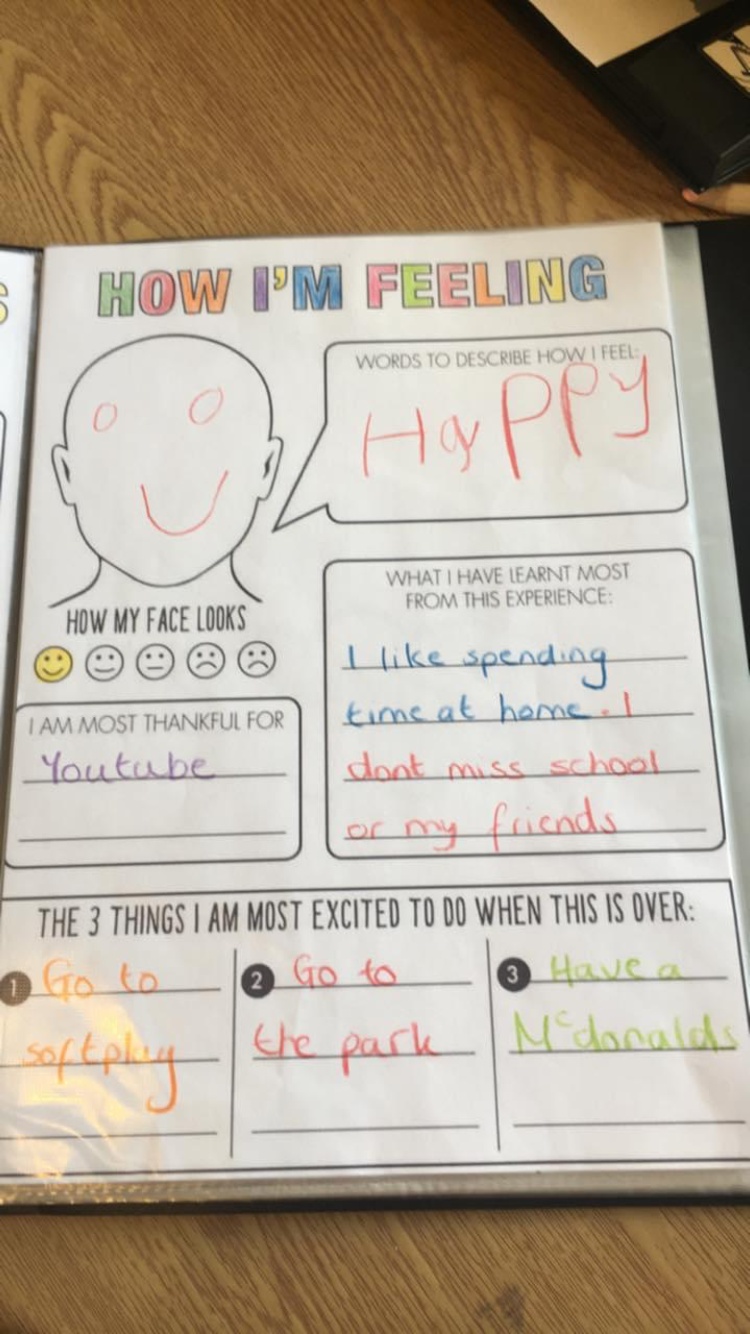 S
HOW I'M FEELING
WORDS TO DESCRIBE HOW I FEEL:
Happy
HOW MY FACE LOOKS
WHAT I HAVE LEARNT MOST
FROM THIS EXPERIENCE:
I like spending
time at home. I
dont miss school
or my friends
I AM MOST THANKFUL FOR
Youtube
THE 3 THINGS I AM MOST EXCITED TO DO WHEN THIS IS OVER:
1 Go to
softplay
2 Go to
the park
3 Have a
Mcdonalds